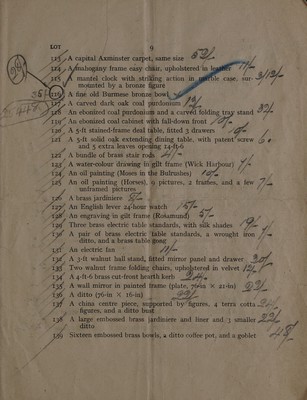 LOT
9
113 A capital Axminster carpet, same size 52/-
114 A mahogany frame easy chair, upholstered in leather 11/-
115 A mantel clock with striking action in marble case, sur-
mounted by a bronze figure
116 A fine old Burmese bronze bowl
117 A carved dark oak coal purdonium
118 An ebonized coal purdonium and a carved folding tray stand
119 An ebonized coal cabinet with fall-down front
120 A 5-ft stained-frame deal table, fitted 3 drawers
121 A 5-ft solid oak extending dining table, with patent screw
and 3 extra leaves opening 24-ft-6
122 A bundle of brass stair rods 4/-
123 A water-colour drawing in gilt frame (Wick Harbour)
124 An oil painting (Moses in the Bulrushes) 10/-
125 An oil painting (Horses), 9 pictures, 2 frames, and a few
unframed pictures
126 A brass jardiniere
127 An English lever 24-hour watch
128 An engraving in gilt frame (Rosamund) 5/-
129 Three brass electric table standards, with silk shades
130 A pair of brass electric table standards, a wrought iron
ditto, and a brass table gong
131 An electric fan 11/-
132 A 3-ft walnut hall stand, fitted mirror panel and drawer
133 Two walnut frame folding chairs, upholstered in velvet
134 A 4-ft-6 brass cut-front hearth kerb
135 A wall mirror in painted frame (plate, 76-in × 21-in)
136 A ditto (76-in × 16-in)
137 A china centre piece, supported by figures, 4 terra cotta
figures, and a ditto bust
138 A large embossed brass jardiniere and liner and 3 smaller
ditto
139 Sixteen embossed brass bowls, a ditto coffee pot, and a goblet